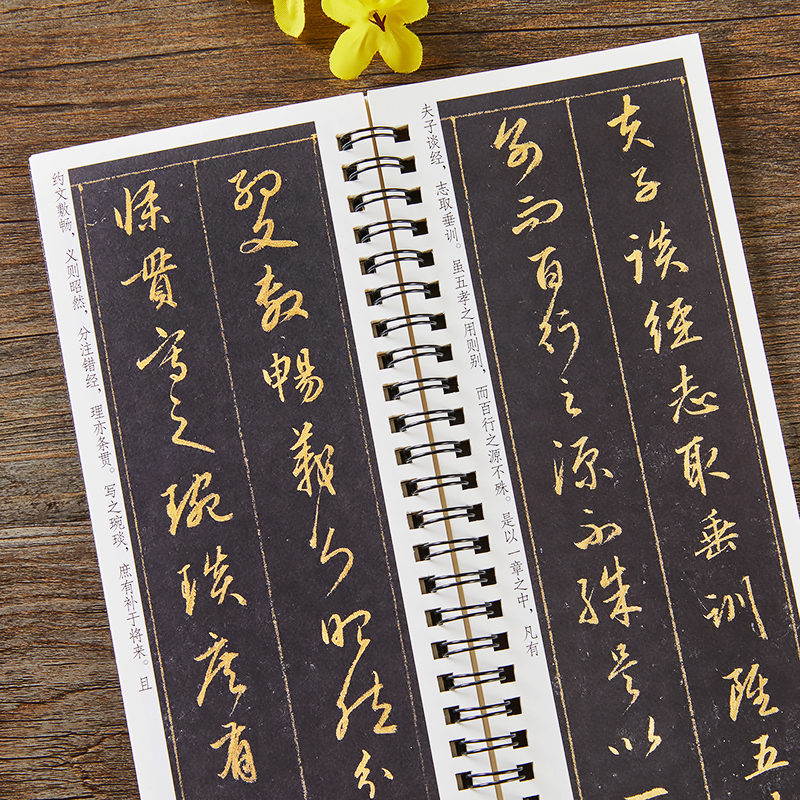 夫子談經志取垂訓雖五
別而百行之源不殊是以一
夫子谈经，志取垂训。虽五孝之用则别，而百行之源不殊。是以一章之中，凡有
約文敷暢義則昭然分
條貫寫之琬琰庶有
约文敷畅，义则昭然，分注错经，理亦条贯。写之琬琰，庶有补于将来。且